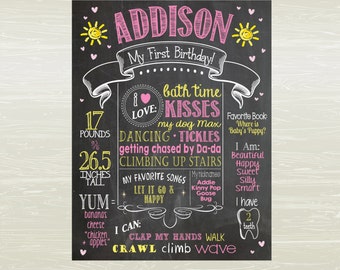 ADDISON
My First Birthday!
17
POUNDS
&
26.5
INCHES
TALL
YUM =
bananas
cheese
"chicken
apples"
I
LOVE:
bath time
KISSES
my dog Max
DANCING • TICKLES
getting chased by Da-da
CLIMBING UP STAIRS
MY FAVORITE SONGS
LET IT GO &
HAPPY
My nicknames
Addie
Kinny Pop
Goose
Bug
Favorite Book:
Where is
Baby's Puppy?
I Am:
Beautiful
Happy
Sweet
Silly
Smart
I have
2
teeth
I CAN:
CLAP MY HANDS WALK
CRAWL climb wave